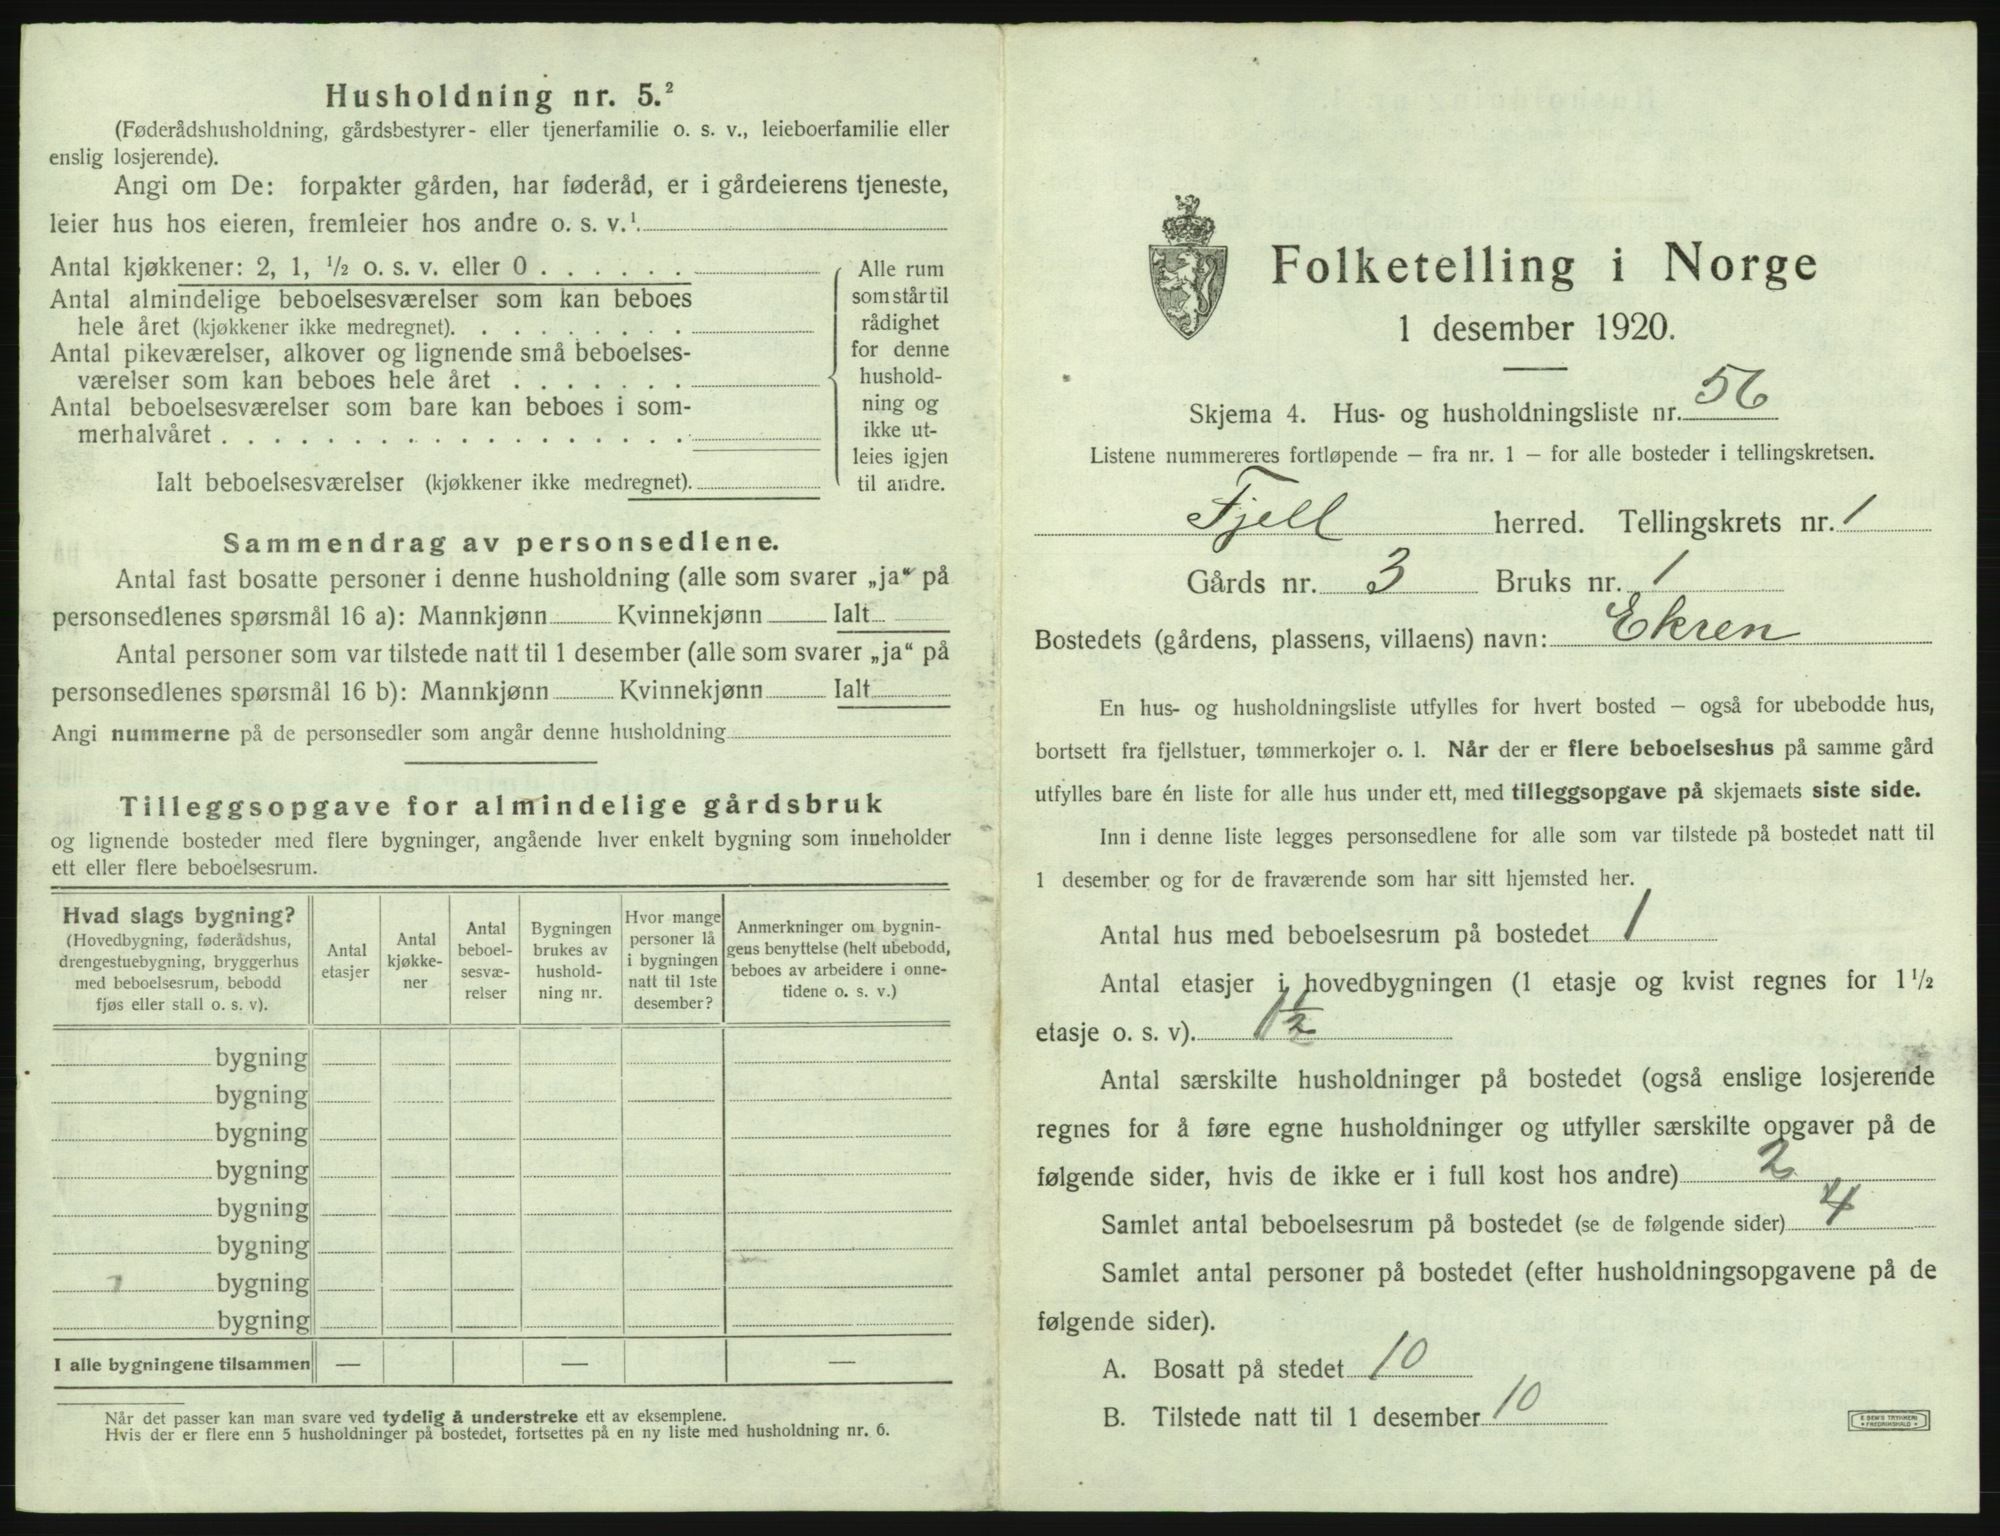 Husholdning nr. 5.²
(Føderådshusholdning, gårdsbestyrer- eller tjenerfamilie o. s. v., leieboerfamilie eller
enslig losjerende).
Angi om De: forpakter gården, har føderåd, er i gårdeierens tjeneste,
leier hus hos eieren, fremleier hos andre o. s. v.¹
Antal kjøkkener: 2, 1, ½ o. s. v. eller 0 . . . . . .
Antal almindelige beboelsesværelser som kan beboes
hele året (kjøkkener ikke medregnet). . . . . . . . .
Antal pikeværelser, alkover og lignende små beboelses-
værelser som kan beboes hele året . . . . . . .
Antal beboelsesværelser som bare kan beboes i som-
merhalvåret . . . . . . . . . . . . . . . . . .
Ialt beboelsesværelser (kjøkkener ikke medregnet).
Alle rum
som står til
rådighet
for denne
hushold-
ning og
ikke ut-
leies igjen
til andre.
Sammendrag av personsedlene.
Antal fast bosatte personer i denne husholdning (alle som svarer „ja“ på
personsedlenes spørsmål 16 a): Mannkjønn Kvinnekjønn Ialt
Antal personer som var tilstede natt til 1 desember (alle som svarer „ja“ på
personsedlenes spørsmål 16 b): Mannkjønn Kvinnekjønn Ialt
Angi nummerne på de personsedler som angår denne husholdning
Tilleggsopgave for almindelige gårdsbruk
og lignende bosteder med flere bygninger, angående hver enkelt bygning som inneholder
ett eller flere beboelsesrum.
Hvad slags bygning?
(Hovedbygning, føderådshus,
drengestuebygning, bryggerhus
med beboelsesrum, bebodd
fjøs eller stall o. s. v).
Antal
etasjer
Antal
kjøkke-
ner
Antal
beboel-
sesvæ-
relser
Bygningen
brukes av
hushold-
ning nr.
Hvor mange
personer lå
i bygningen
natt til 1ste
desember?
Anmerkninger om bygnin-
gens benyttelse (helt ubebodd,
beboes av arbeidere i onne-
tidene o. s. v.)
bygning
bygning
bygning
bygning
bygning
bygning
bygning
bygning
I alle bygningene tilsammen — — —
Når det passer kan man svare ved tydelig å understreke ett av eksemplene.
Hvis der er flere enn 5 husholdninger på bostedet, fortsettes på en ny liste med husholdning nr. 6.
Folketelling i Norge
1 desember 1920.
Skjema 4. Hus- og husholdningsliste nr. 56
Listene nummereres fortløpende – fra nr. 1 – for alle bosteder i tellingskretsen.
Fjell herred. Tellingskrets nr. 1
Gårds nr. 3 Bruks nr. 1
Bostedets (gårdens, plassens, villaens) navn: Ekren
En hus- og husholdningsliste utfylles for hvert bosted – også for ubebodde hus,
bortsett fra fjellstuer, tømmerkojer o. l. Når der er flere beboelseshus på samme gård
utfylles bare én liste for alle hus under ett, med tilleggsopgave på skjemaets siste side.
Inn i denne liste legges personsedlene for alle som var tilstede på bostedet natt til
1 desember og for de fraværende som har sitt hjemsted her.
Antal hus med beboelsesrum på bostedet 1
Antal etasjer i hovedbygningen (1 etasje og kvist regnes for 1 ½
etasje o. s. v). 1½
Antal særskilte husholdninger på bostedet (også enslige losjerende
regnes for å føre egne husholdninger og utfyller særskilte opgaver på de
følgende sider, hvis de ikke er i full kost hos andre) 2
Samlet antal beboelsesrum på bostedet (se de følgende sider) 4
Samlet antal personer på bostedet (efter husholdningsopgavene på de
følgende sider).
A. Bosatt på stedet 10
B. Tilstede natt til 1 desember 10
E SEM'S TRYKKERI
FREDRIKSHALD